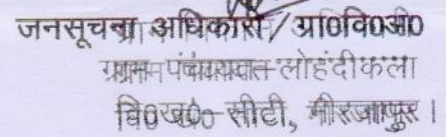 जनसूचना अधिकारी / ग्रा0वि0अ0
ग्राम पंचायत-लोहंदीकला
वि0ख0- सीटी, मीरजापुर ।